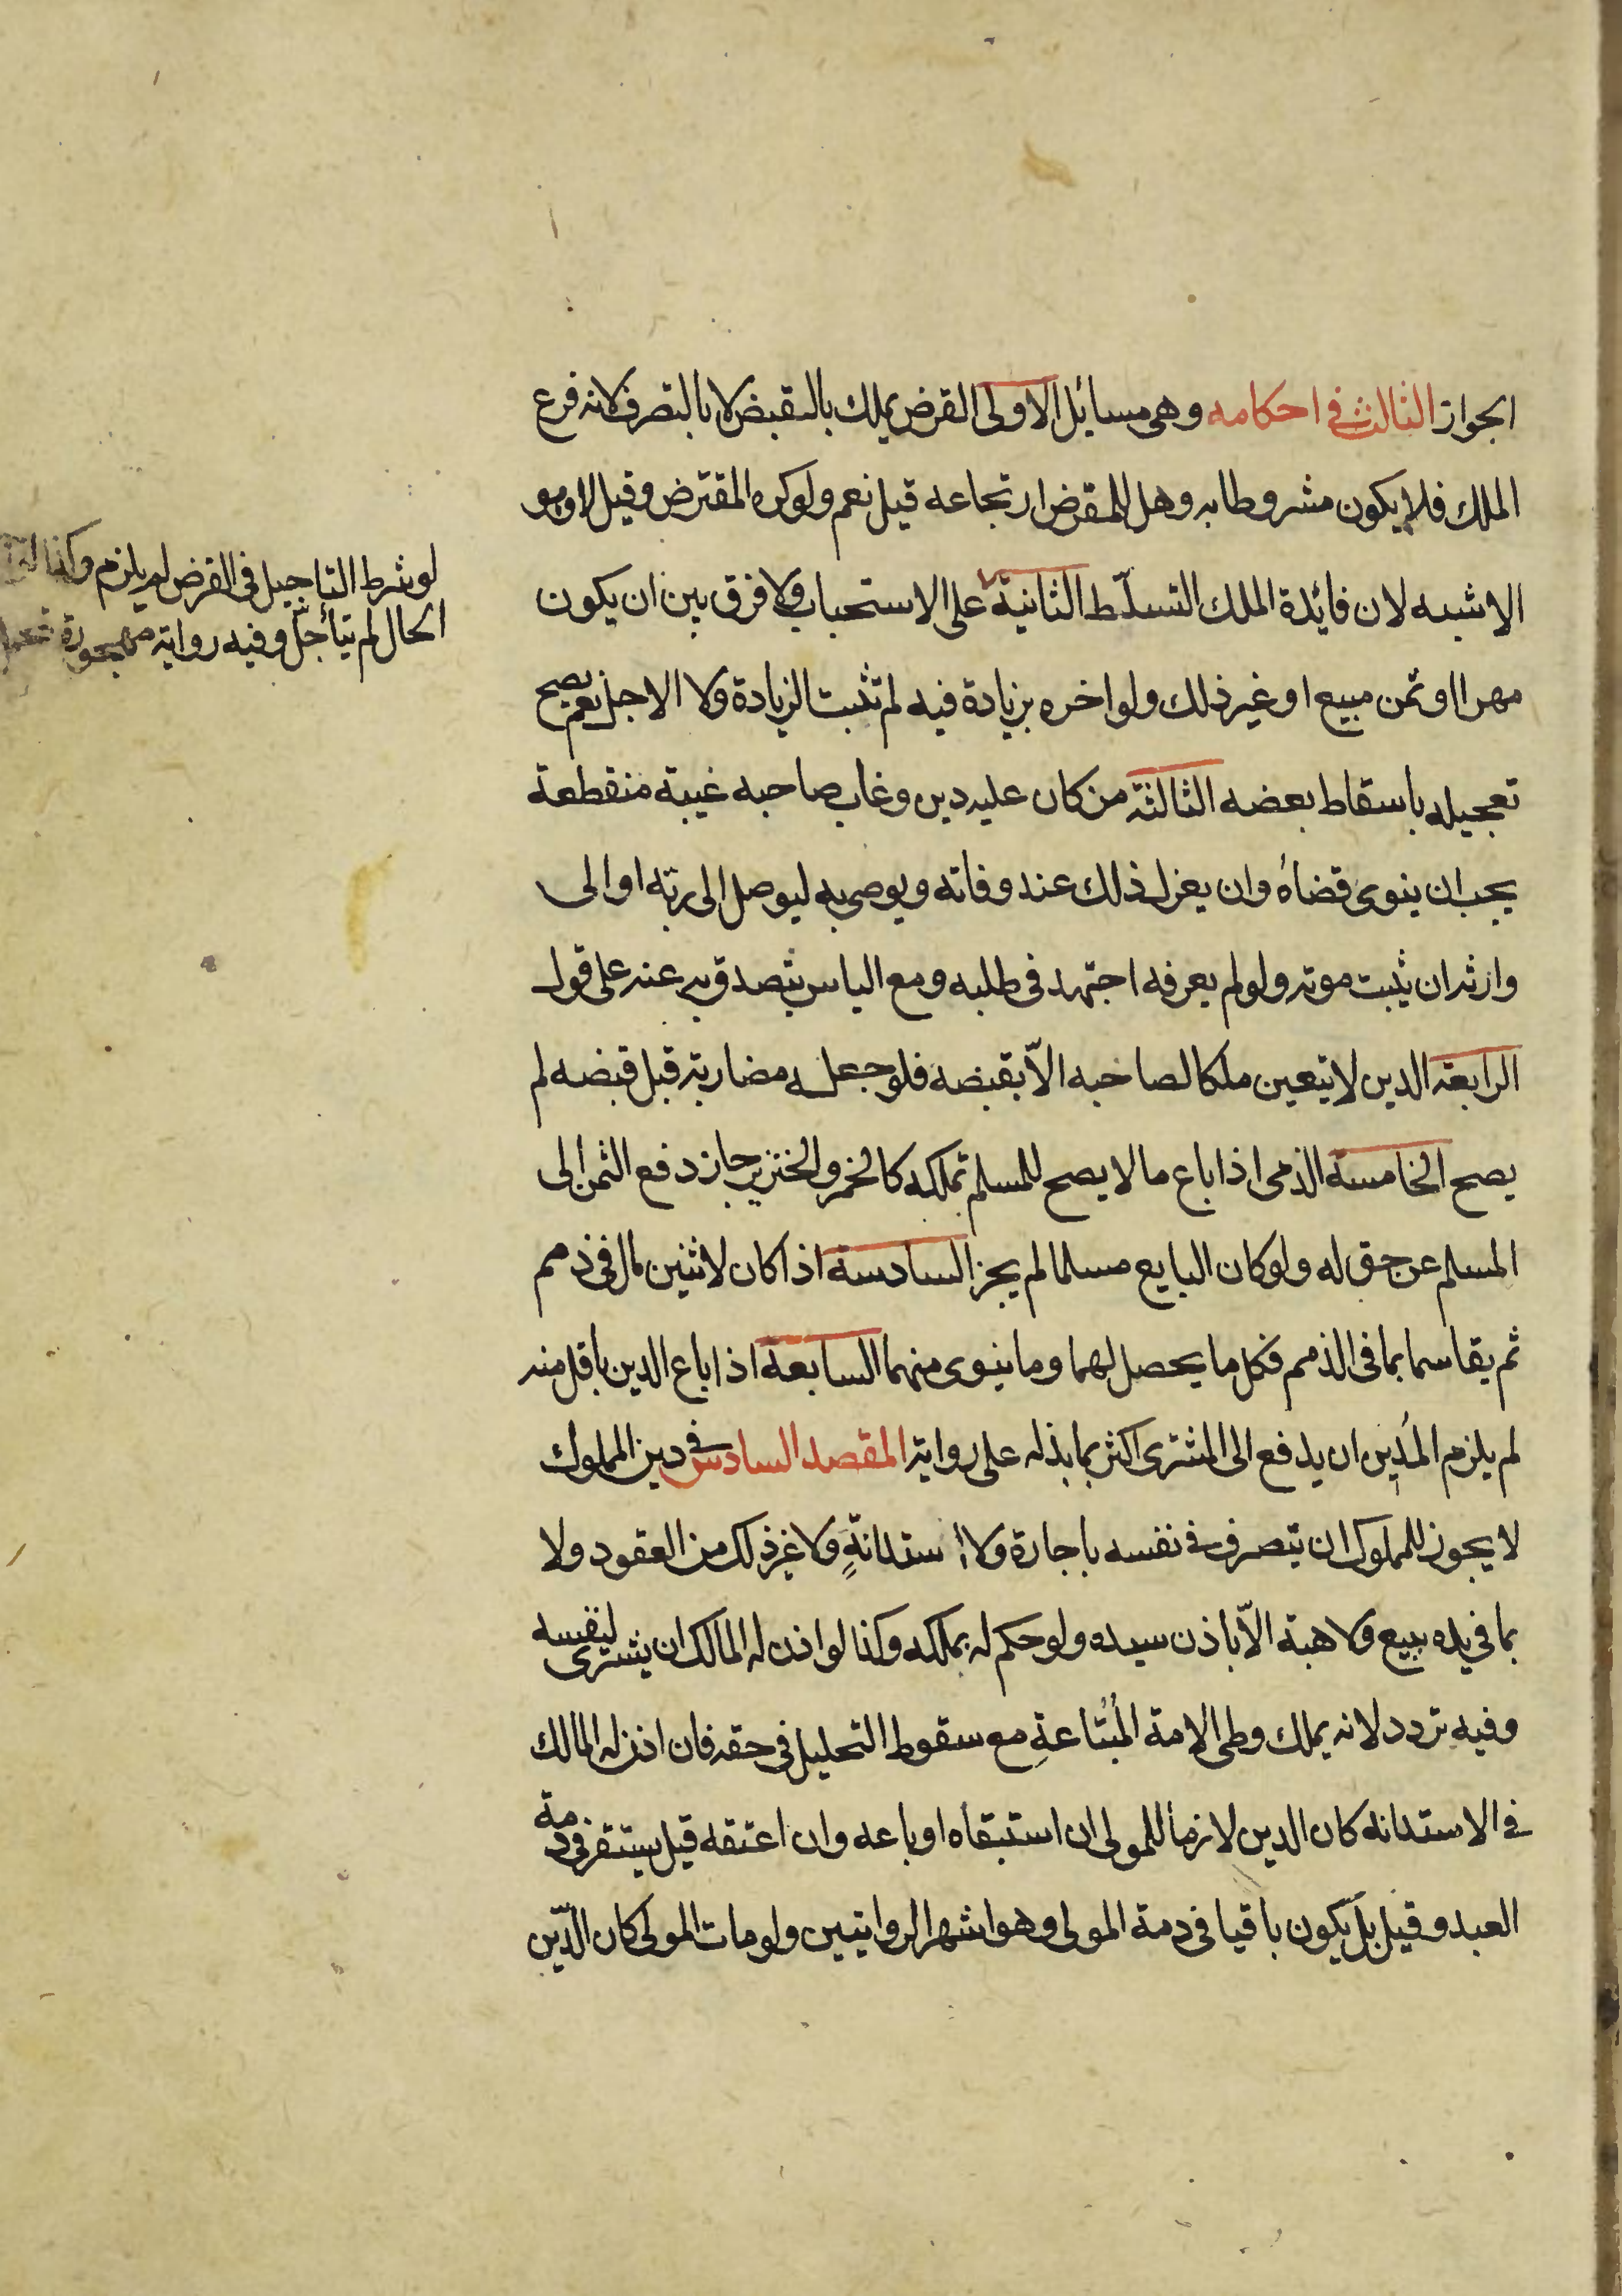 الجواز الثالث في احكامه وهى مسايل الاولى القرض يملك بالقبض لا بالتصرف لانه فرع
الملك فلا يكون مشروطا به وهل للمقرض ارتجاعه قيل نعم ولو كره المقترض وقيل لا وهو
الاشبه لان فايدة الملك التسلّط الثانية على الاستحباب ولا فرق بين ان يكون
مهرا او ثمن مبيع او غير ذلك ولو اخره بزيادة فيه لم تثبت الزيادة ولا الاجل نعم يصح
تعجيله باسقاط بعضه الثالثة من كان عليه دين وغاب صاحبه غيبة منقطعة
يجب ان ينوى قضاه وان يعزل ذلك عند وفاته ويوصى به ليوصل الى ربّه او الى
وارثه ان ثبت موته ولو لم يعرفه اجتهد فى طلبه ومع الياس يتصدق به عنه على قول
الرابعة الدين لا يتعين ملكا لصاحبه الاّ بقبضه فلو جعله مضاربة قبل قبضه لم
يصح الخامسة الذمى اذا باع ما لا يصح للمسلم تملكه كالخمر والخنزير جاز دفع الثمن الى
المسلم عن حق له ولو كان البايع مسلما لم يجز السادسة اذا كان لاثنين مال فى ذمم
ثم يقاسما بما فى الذمم فكل ما يحصل لهما وما ينوى منهما السابعة اذا باع الدين باقل منه
لم يلزم المُدين ان يدفع الى المشترى اكثر بما بذله على رواية المقصد السادس فى دين المملوك
لا يجوز للمملوك ان يتصرف فى نفسه باجارة ولا استدانةٍ ولا غير ذلك من العقود ولا
بما فى يده ببيع ولا هبة الاّ باذن سيده ولو حكم له بملكه وكذا لو اذن له المالك ان يشترى لنفسه
وفيه تردد لانه يملك وطى الامة المُبتاعةِ مع سقوط التحليل فى حقه فان اذن له المالك
فى الاستدانة كان الدين لازما للمولى ان استبقاه او باعه وان اعتقه قيل يستقر فى ذمة
العبد وقيل بل يكون باقيا فى ذمة المولى وهو اشهر الروايتين ولو مات المولى كان الدّين
لو شرط التاجيل فى القرض لم يلزم وكذا لو
الحال لم يتأجّل وفيه رواية مهجورة